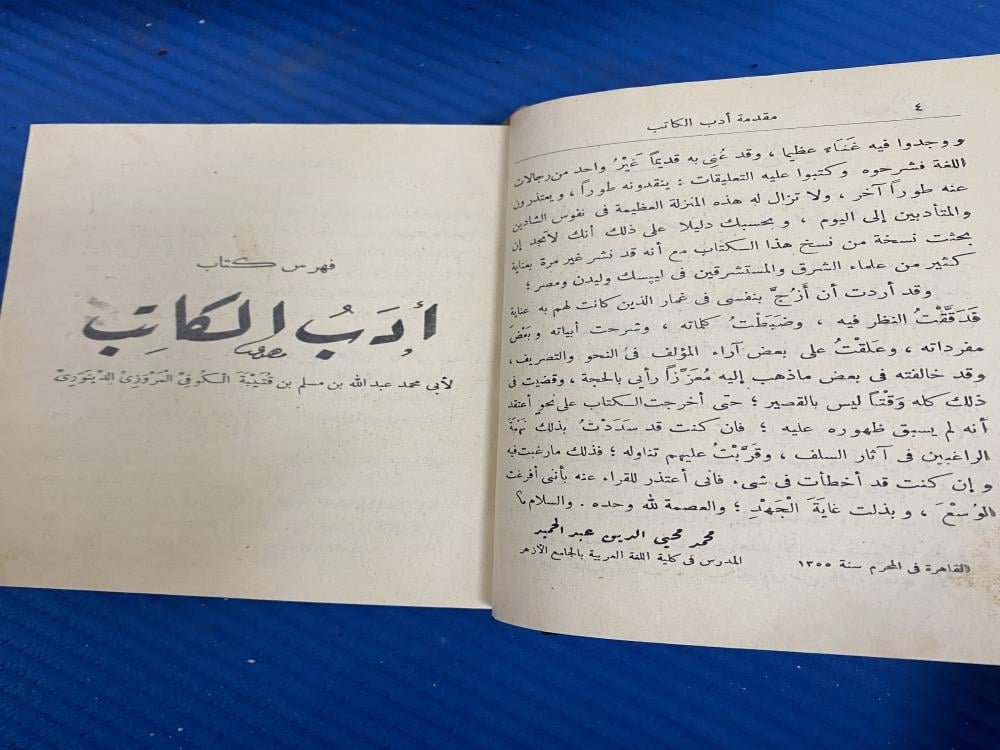 ٤
مقدمة أدب الكاتب
ووجدوا فيه غَنَاء عظيما ، وقد عُنِى به قديماً غَيْرُ واحد من رجالات
اللغة فشرحوه وكتبوا عليه التعليقات : ينقدونه طوراً ، ويعتذرون
عنه طوراً آخر ، ولا تزال له هذه المنزلة العظيمة فى نفوس الشادين
والمتأدبين إلى اليوم ، وبحسبك دليلا على ذلك أنك لاتجد إن
بحثت نسخة من نسخ هذا الكتاب مع أنه قد نشر غير مرة بعناية
كثير من علماء الشرق والمستشرقين فى ليپسك وليدن ومصر ؛
وقد أردت أن أَزُجَّ بنفسى فى غمار الذين كانت لهم به عناية
قَدَقَّقْتُ النظر فيه ، وضبَطْتُ كلماته ، وشرحت أبياته وبَعْضَ
مفرداته ، وعَلقْتُ على بعض آراء المؤلف فى النحو والتصريف ،
وقد خالفته فى بعض ماذهب إليه مُعَزِّزاً رأيى بالحجة ، وقضيت فى
ذلك كله وَقْتاً ليس بالقصير ؛ حتى أخرجت الكتاب على نحوٍ أعتقد
أنه لم يسبق ظهوره عليه ؛ فان كنت قد سَدَدْتُ بذلك نَهْمَةَ
الراغبين فى آثار السلف ، وقَرَّبْتُ عليهم تناوله ؛ فذلك مارغبت فيه
وإن كنت قد أخطأت فى شىء فانى أعتذر للقراء عنه بأننى أفرغت
الوُسْعَ ، وبذلت غايَةَ الْجَهْدِ ؛ والعصمة لله وحده . والسلام ؟
محمد محيى الدين عبد الحميد
القاهرة فى المحرم سنة ١٣٥٥ المدرس فى كلية اللغة العربية بالجامع الأزهر
فهرس كتاب
أدَبُ الكاتِب
لأبي محمد عبد الله بن مسلم بن قُتَيْبَةَ الكوفىِّ المَرْوَزِىِّ الدِّينَوَرِىِّ